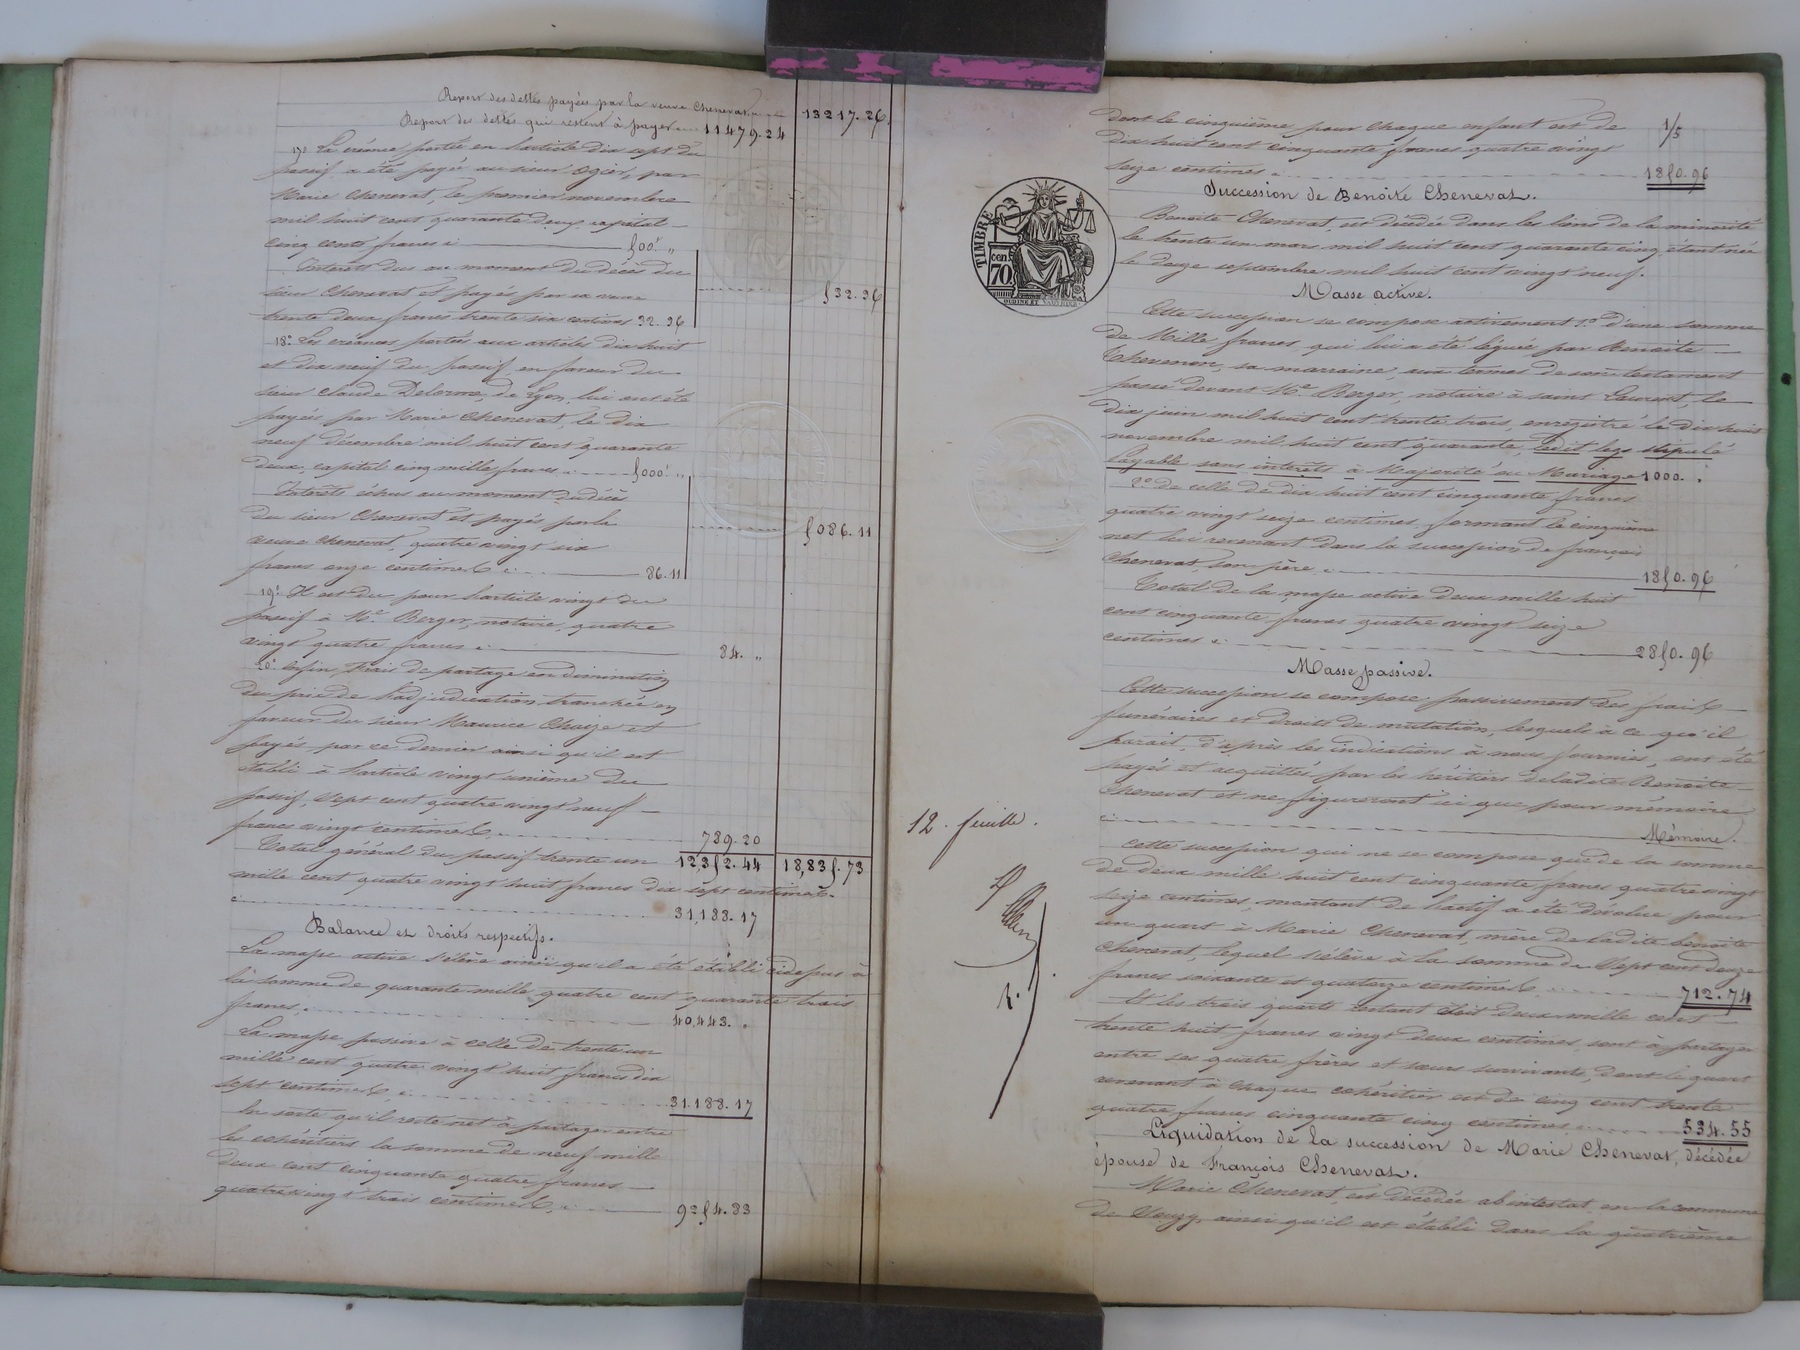 Report des dettes payées par la veuve Chenevat 13217.26.
Report des dettes qui restent à payer 11479.24
17° La créance portée en l'article dix sept du
passif a été payée au sieur Ogier, par
Marie Chenevat, le premier novembre
mil huit cent quarante deux, capital
cinq cents francs 500f "
Intérêts dus au moment du décès du
sieur Chenevat et payés par sa veuve
trente deux francs trente six centimes 32.36
532.36
18° Les créances portées aux articles dix huit
et dix neuf du passif en faveur du
sieur Claude Delorme, de Lyon, lui ont été
payées par Marie Chenevat, le dix
neuf décembre mil huit cent quarante
deux, capital cinq mille francs 5000f "
Intérêts échus au moment du décès
du sieur Chenevat et payés par la
veuve Chenevat, quatre vingt six
francs onze centimes 86.11
5086.11
19° Il est du pour l'article vingt du
passif à Me Berger, notaire, quatre
vingt quatre francs 84. "
20° Enfin, frais de partage en diminution
du prix de l'adjudication tranchée en
faveur du sieur Maurice Chaize et
payés par ce dernier ainsi qu'il est
établi à l'article vingt unième du
passif, sept cent quatre vingt neuf
francs vingt centimes 789.20
Total général du passif trente un 12352.44 18,835.73
mille cent quatre vingt huit francs dix sept centimes.
31,188.17
Balance et droits respectifs.
La masse active s'élève ainsi qu'il a été établi cidessus à
la somme de quarante mille quatre cent quarante trois
francs 40,443. "
La masse passive à celle de trente un
mille cent quatre vingt huit francs dix
sept centimes 31.188.17
En sorte qu'il reste net à partager entre
les cohéritiers la somme de neuf mille
deux cent cinquante quatre francs
quatrevingt trois centimes 9254.83
dont le cinquième pour chaque enfant est de 1/5
dix huit cent cinquante francs quatre vingt
seize centimes 1850.96
Succession de Benoite Chenevat.
Benoite Chenevat, est décédée dans les liens de la minorité
le trente un mars mil huit cent quarante cinq, étant née
le douze septembre mil huit cent vingt neuf.
TIMBRE
cen
70
Masse active.
Cette succession se compose activement 1° d'une somme
de Mille francs, qui lui a été léguée par Benoite
Thevenon, sa marraine, aux termes de son testament
passé devant Me Berger, notaire à saint Laurent, le
dix juin mil huit cent trente trois, enregistré le dix huit
novembre mil huit cent quarante, ledit legs stipulé
payable sans intérêts à Majorité ou Mariage 1000.
2° de celle de dix huit cent cinquante francs
quatre vingt seize centimes, formant le cinquième
net lui revenant dans la succession de françois
Chenevat, son père 1850.96
Total de la masse active deux mille huit
cent cinquante francs quatre vingt seize
centimes 2850.96
Masse passive.
Cette succession se compose passivement des frais
funéraires et droits de mutation, lesquels à ce qu'il
parait, d'après les indications à nous fournies, ont été
payés et acquittés par les héritiers de ladite Benoite
Chenevat et ne figureront ici que pour mémoire
Mémoire.
12. feuille.
Cette succession qui ne se compose que de la somme
de deux mille huit cent cinquante francs quatre vingt
seize centimes, montant de l'actif a été dévolue pour
un quart à Marie Chenevat, mère de ladite benoite
Chenevat, lequel s'élève à la somme de Sept cent douze
francs soixante et quatorze centimes 712.74
Et les trois quarts restant soit deux mille cent
trente huit francs vingt deux centimes, sont à partager
entre ses quatre frères et sœurs survivants, dont le quart
revenant à chaque cohéritier est de cinq cent trente
quatre francs cinquante cinq centimes 534.55
Liquidation de la succession de Marie Chenevat, décédée
épouse de François Chenevat.
Marie Chenevat, est décédée abintestat, en la commune
de ainsi qu'il est établi dans la quatrième